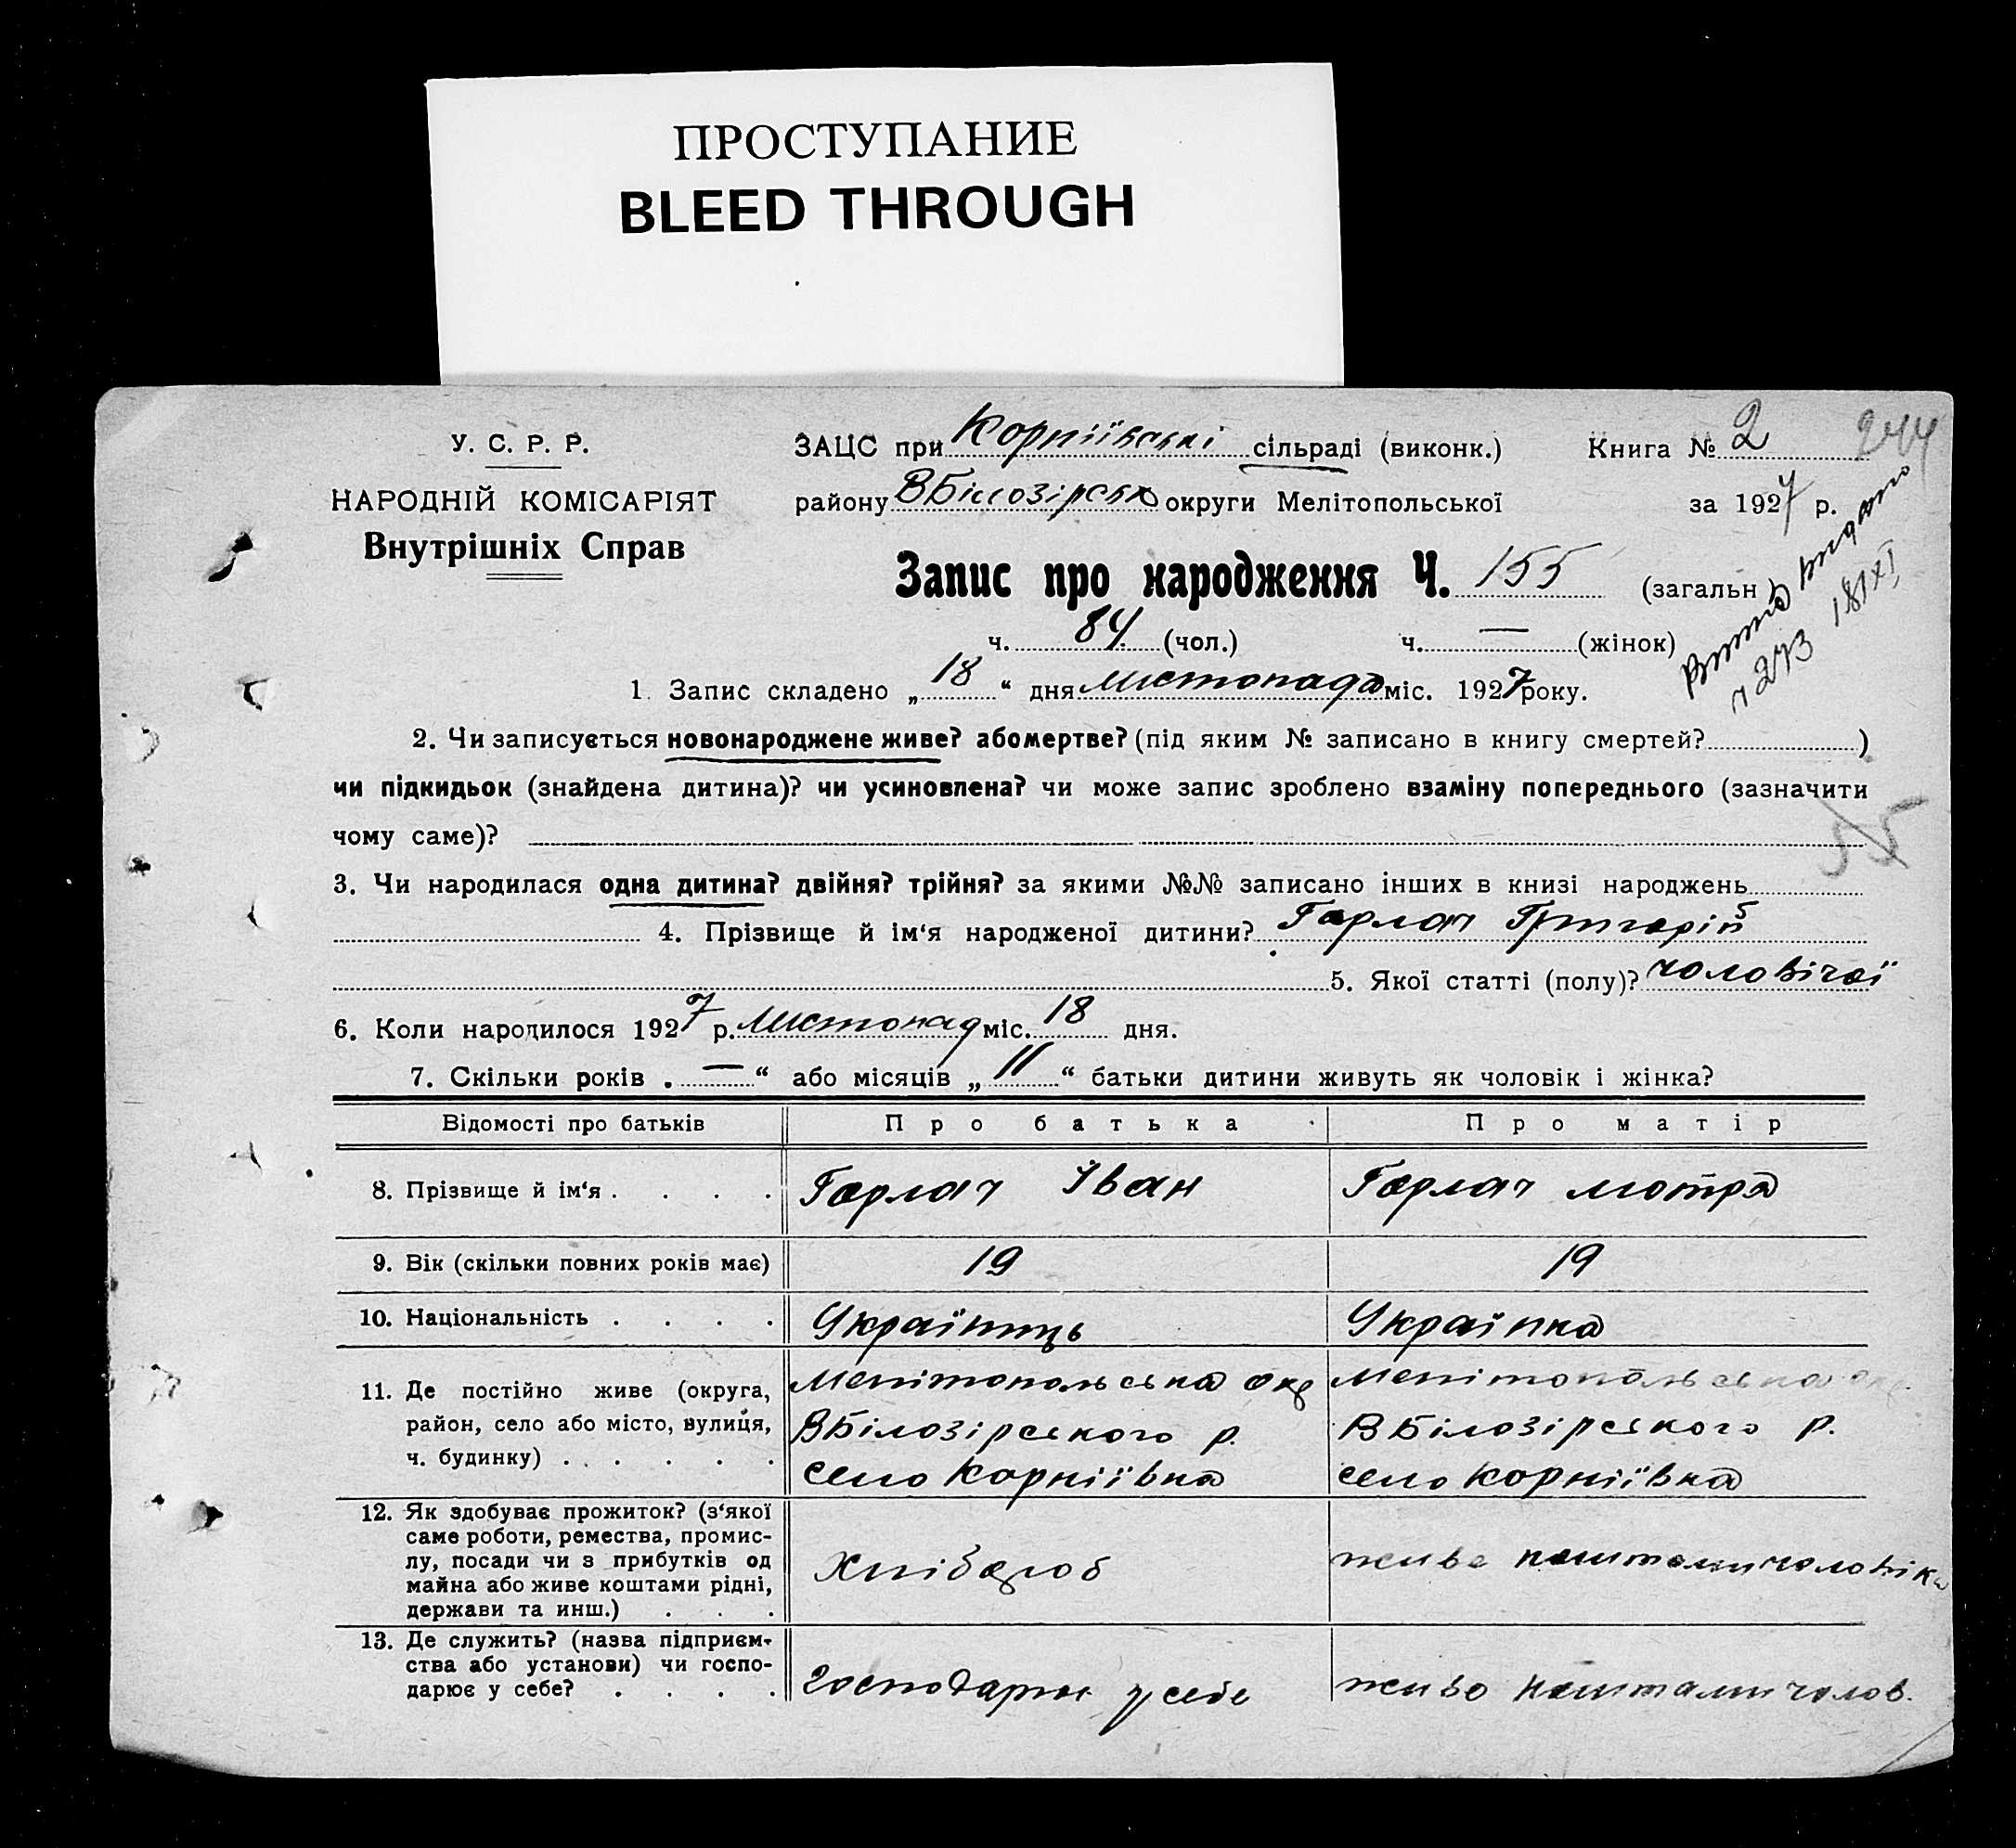 ПРОСТУПАНИЕ
BLEED THROUGH
У. С. Р. Р.
НАРОДНІЙ КОМІСАРІЯТ
Внутрішніх Справ
ЗАЦС при Корніївські сільраді (виконк.)
району ВБілозірськ округи Мелітопольської
Книга № 2
244
за 1927 р.
Запис про народження Ч. 155 (загальн.)
ч. 84. (чол.) ч. — (жінок)
видано
ч 273 18/XI
1. Запис складено „18“ дня листопада міс. 1927 року.
2. Чи записується новонароджене живе? або мертве? (під яким № записано в книгу смертей? )
чи підкидьок (знайдена дитина)? чи усиновлена? чи може запис зроблено взаміну попереднього (зазначити
чому саме)?
55
3. Чи народилася одна дитина? двійня? трійня? за якими №№ записано інших в книзі народжень
4. Прізвище й ім‘я народженої дитини? Гарлач Григорій
5. Якої статті (полу)? чоловічої
6. Коли народилося 1927 р. листопад міс. 18 дня.
7. Скільки років „—“ або місяців „11“ батьки дитини живуть як чоловік і жінка?
Відомості про батьків Про батька Про матір
8. Прізвище й ім‘я . . . . Гарлач Іван Гарлач мотря
9. Вік (скільки повних років має) 19 19
10. Національність . . . . Українець Українка
11. Де постійно живе (округа,
район, село або місто, вулиця,
ч. будинку) . . . . . .
Мелітопольська окр
ВБілозірського р.
село Корніївка
Мелітопольська окр.
ВБілозірського р.
село Корніївка
12. Як здобуває прожиток? (з‘якої
саме роботи, ремества, промис-
лу, посади чи з прибутків од
майна або живе коштами рідні,
держави та инш.) . . .
Хлібороб
живе коштами чоловіка
13. Де служить? (назва підприєм-
ства або установи) чи госпо-
дарює у себе? . . . .
господарює у себе
живе коштами чолов.